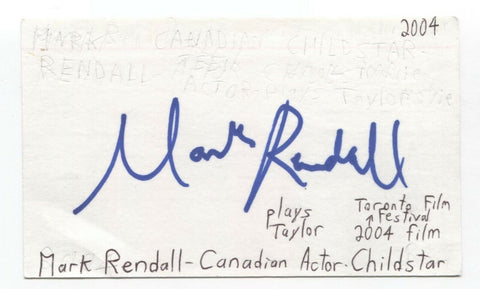 2004
MARK CANADIAN CHILDSTAR-
RENDALL-
ACTOR-plays Taylor
Mark Rendall
plays
Taylor
Toronto Film
Festival
2004 film
Mark Rendall-Canadian Actor-Childstar